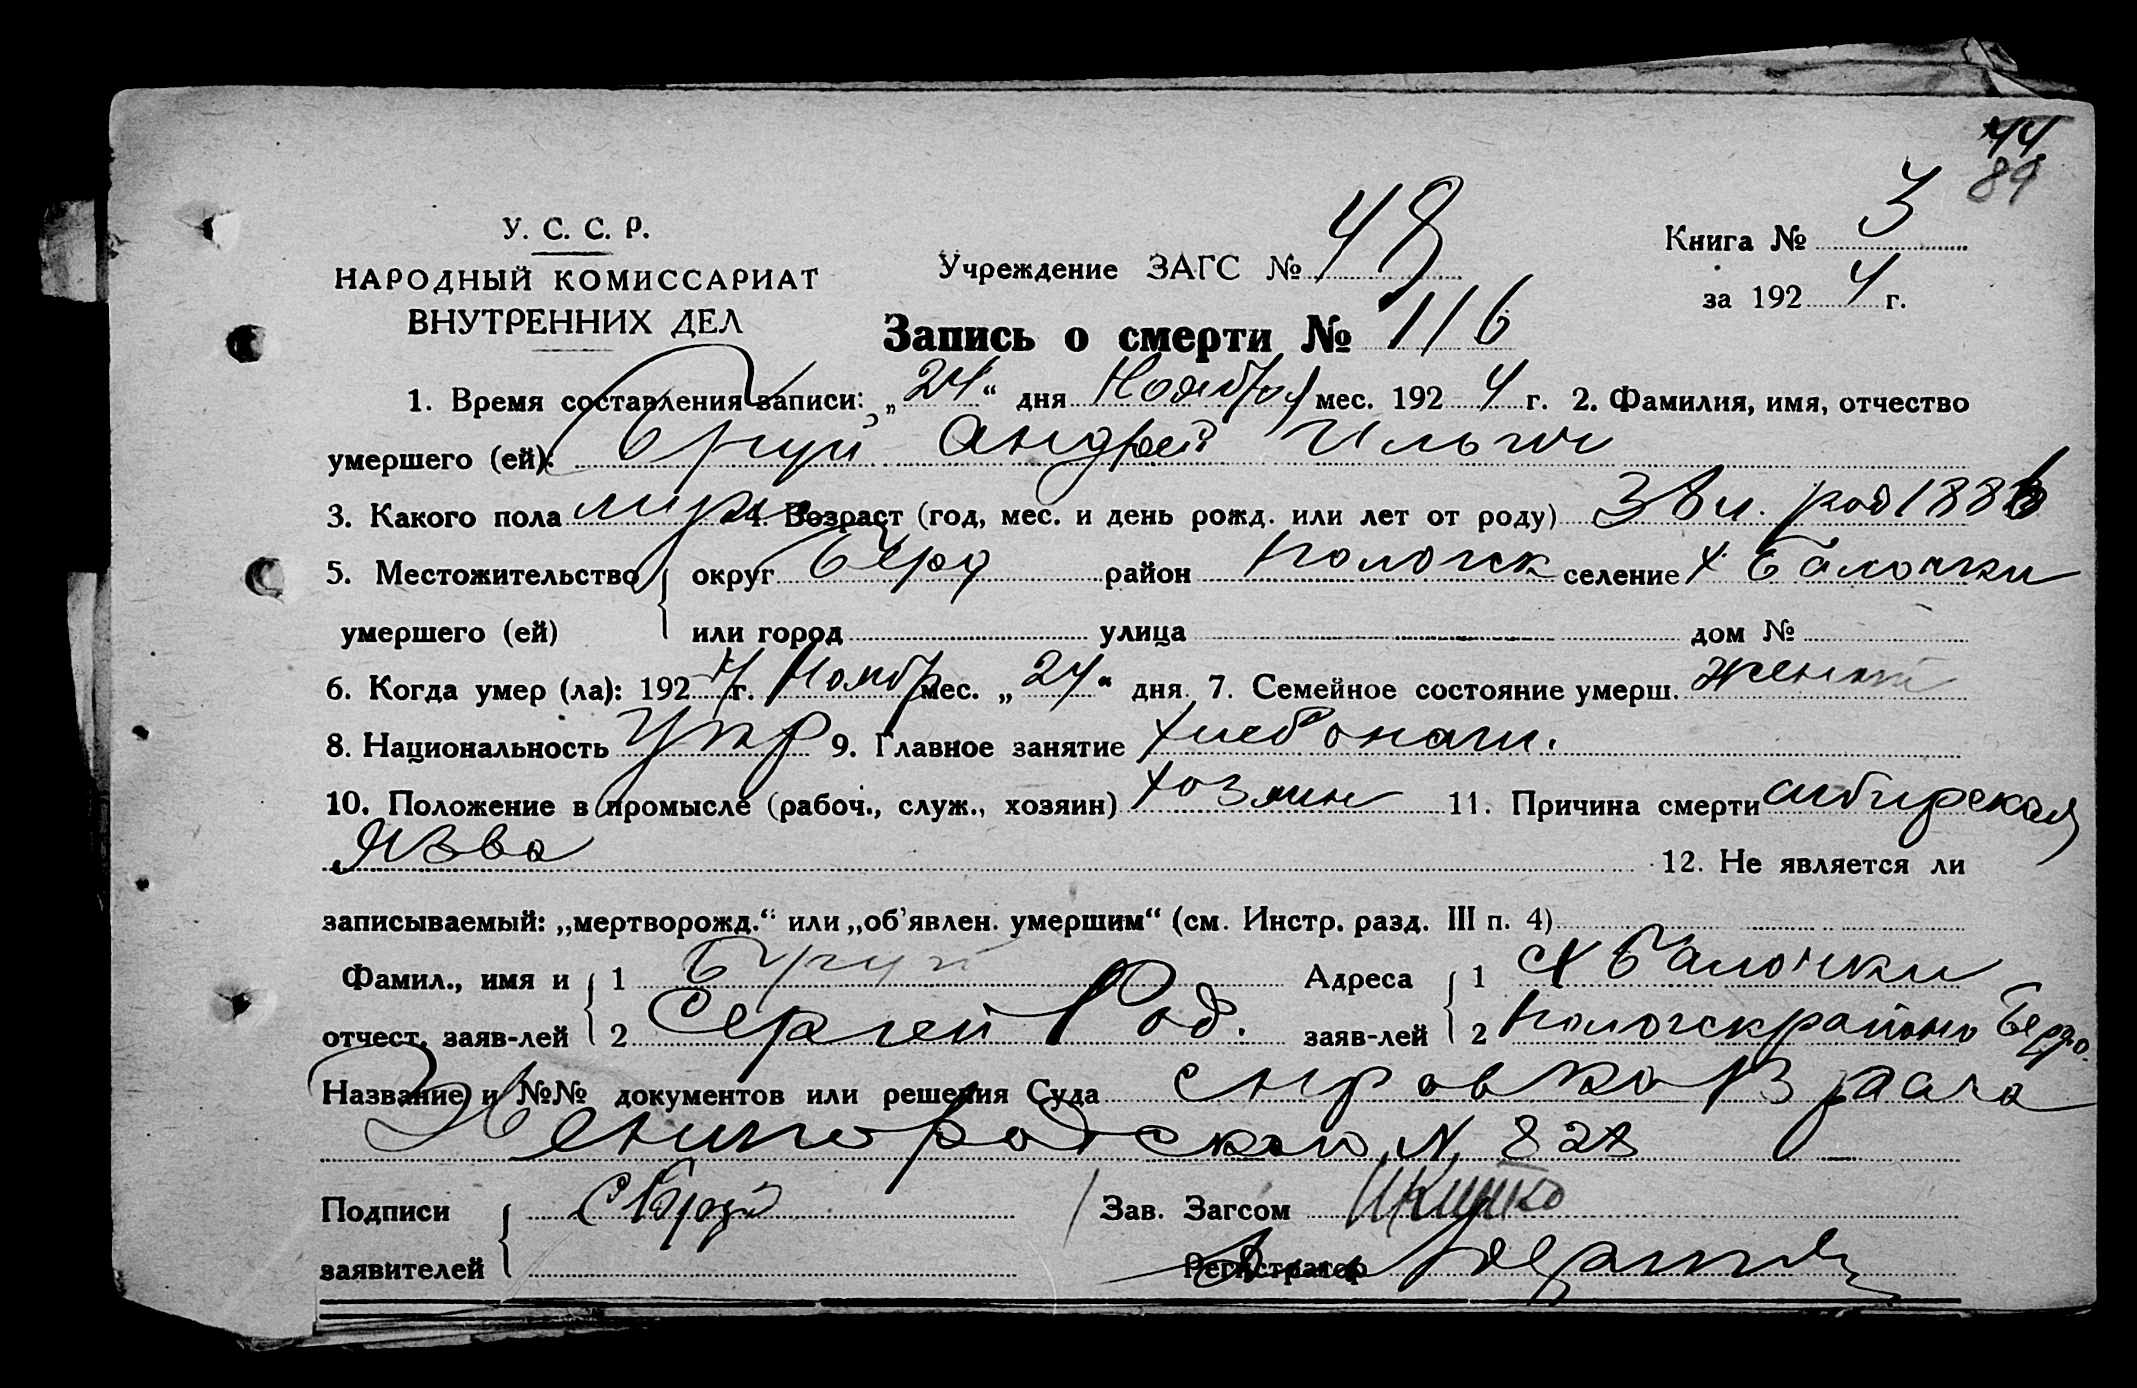 44
89
У. С. С. Р.
НАРОДНЫЙ КОМИССАРИАТ
ВНУТРЕННИХ ДЕЛ
Учреждение ЗАГС № 48
Книга № 3
за 192 4 г.
Запись о смерти № 116
1. Время составления записи: „24“ дня Ноября мес. 192 4 г. 2. Фамилия, имя, отчество
умершего (ей): Андрей Ильич
3. Какого пола муж 4. Возраст (год, мес. и день рожд. или лет от роду) 38 л. род 1886
5. Местожительство округ Берд район пологск селение х Балочки
умершего (ей) или город улица дом №
6. Когда умер (ла): 192 4 г. Ноябр мес. „24“ дня 7. Семейное состояние умерш. женат
8. Национальность укр 9. Главное занятие хлебопаш.
10. Положение в промысле (рабоч., служ., хозяин) хозяин 11. Причина смерти сибирская
язва
12. Не является ли
записываемый: „мертворожд.“ или „об’явлен. умершим“ (см. Инстр. разд. III п. 4)
Фамил., имя и 1 Адреса 1 х Балочки
отчест. заяв-лей 2 Сергей Род. заяв-лей 2 пологск района
Название и №№ документов или решения Суда справка Врача
N 828
Подписи Зав. Загсом
заявителей Регистратор